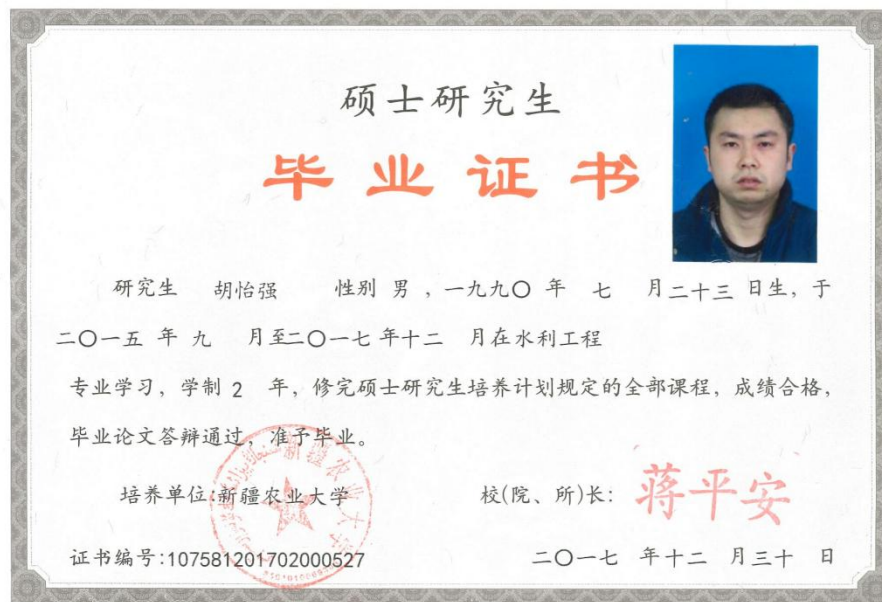 硕士研究生
毕业证书
研究生 胡怡强 性别 男 ，一九九〇 年 七 月二十三 日生，于
二〇一五 年 九 月至二〇一七 年十二 月在水利工程
专业学习，学制 2 年，修完硕士研究生培养计划规定的全部课程，成绩合格，
毕业论文答辩通过，准予毕业。
培养单位:新疆农业大学 校(院、所)长: 蒋平安
新疆农业大学
证书编号:107581201702000527 二〇一七 年十二 月三十 日